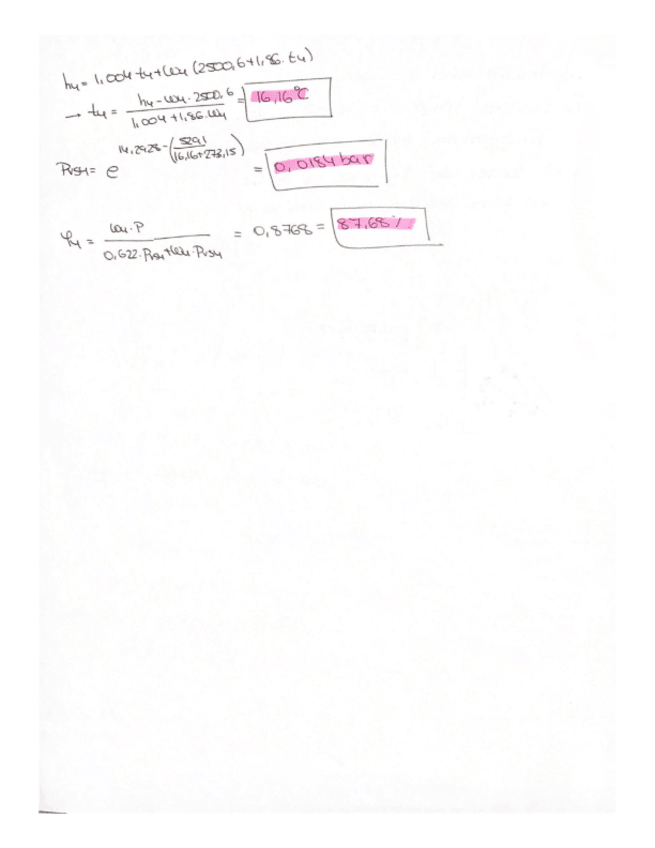 h4 = 1,004 · t4 + ω4 (2500,6 + 1,86 · t4)
→ t4 = (h4 - ω4 · 2500,6) / (1,004 + 1,86 · ω4) = 16,16°C
Pvs4 = e^(14,2928 - (5291 / (16,16 + 273,15))) = 0,0184 bar
φ4 = (ω4 · P) / (0,622 · Pvs4 + ω4 · Pvs4) = 0,8768 = 87,68 %